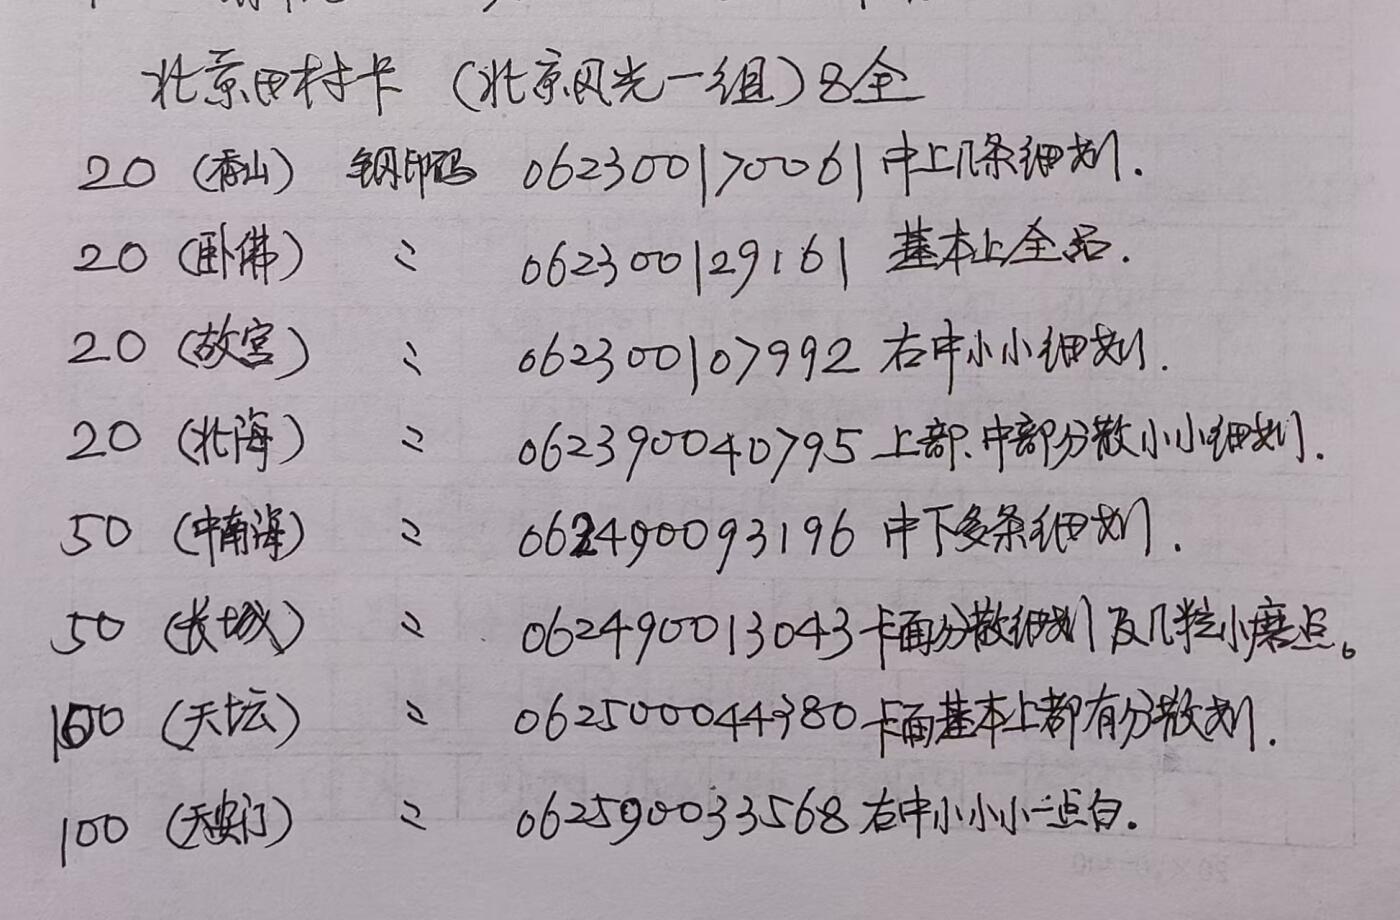 北京田村卡 (北京风光一组) 8全
20 (香山) 钢印码 062300170061 中上几条细划.
20 (卧佛) 〃 062300129161 基本上全品.
20 (故宫) 〃 062300107992 右中小小细划.
20 (北海) 〃 062390040795 上部、中部分散小小细划.
50 (中南海) 〃 062490093196 中下多条细划.
50 (长城) 〃 062490013043 卡面分散细划及几粒小磨点。
100 (天坛) 〃 062500044380 卡面基本上都有分散划.
100 (天安门) 〃 062590033568 右中小小小一点白.